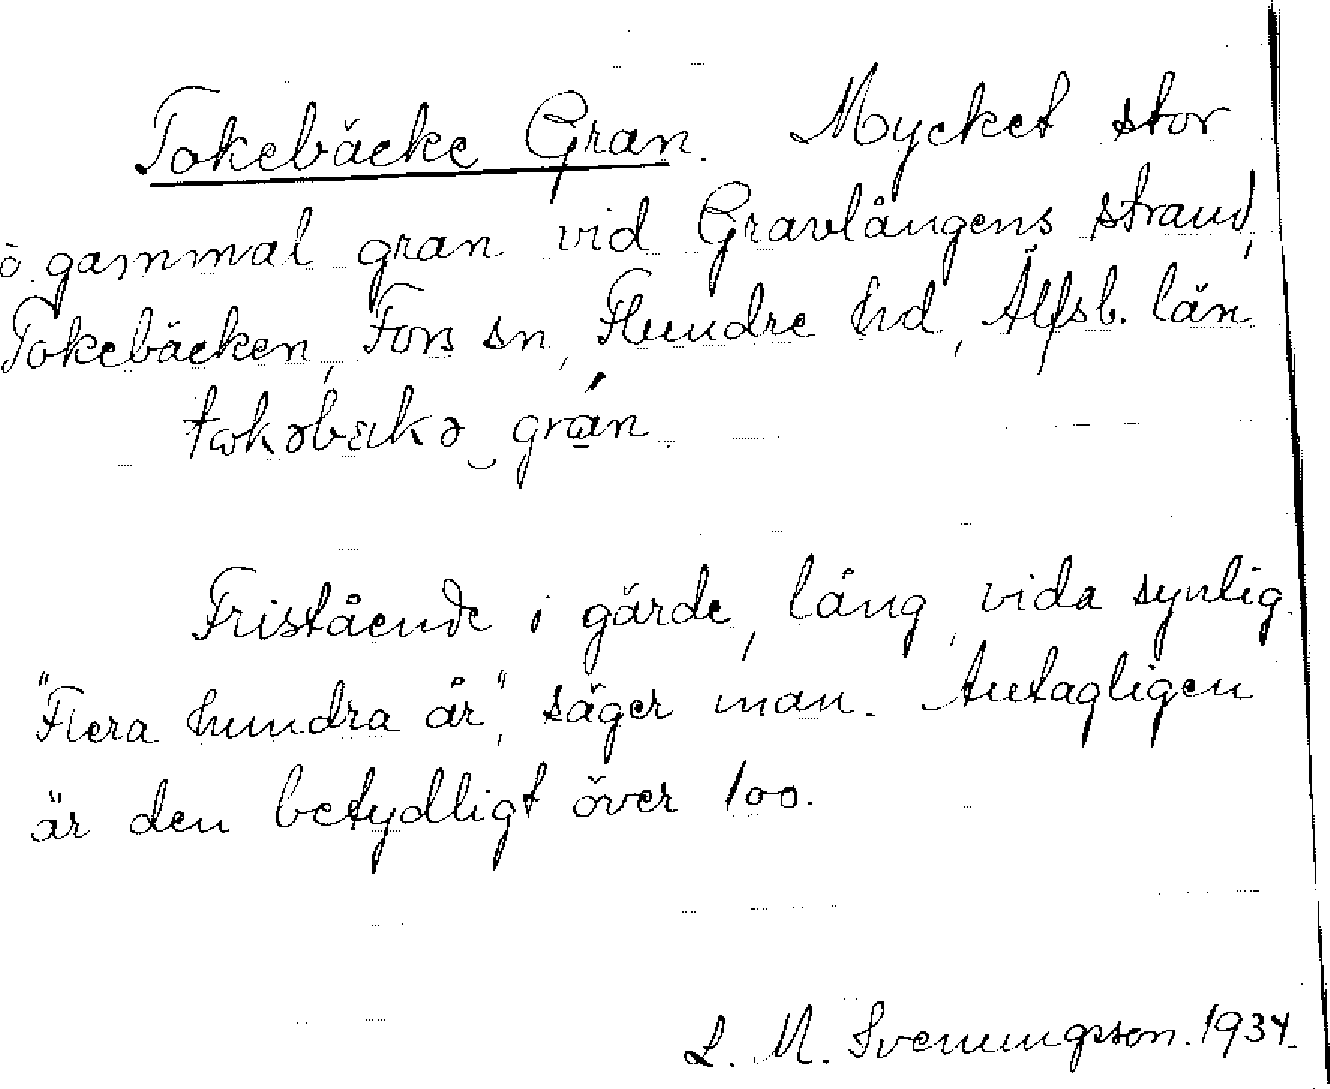 Tokebäcke Gran. Mycket stor
o. gammal gran vid Gravlångens strand,
Tokebäcken, Fors sn, Flundre hd, Älfsb. län.
Fristående i gärde, lång, vida synlig.
"Flera hundra år", säger man. Antagligen
är den betydligt över 100.
L. M. Svenungsson. 1934.